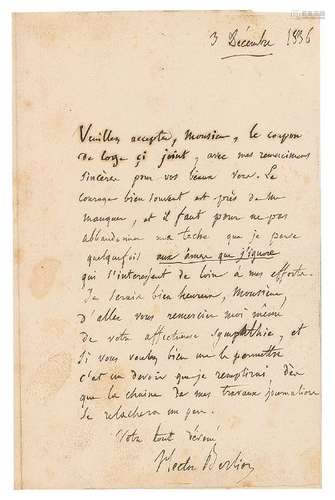 3 Décembre 1836
Veuillez accepter, Monsieur, le coupon
de loge çi joint, avec mes remercimens
sincères pour vos beaux vers. Le
courage bien souvent est près de me
manquer, et il faut pour ne pas
abbandonner ma tache que je pense
quelquefois aux âmes que j'ignore
qui s'interessent de loin à mes efforts.
Je serais bien heureux, Monsieur,
d'aller vous remercier moi même
de votre affectueuse sympathie, et
si vous voulez bien me le permettre
c'est un devoir que je remplirai dès
que la chaîne de mes travaux journaliers
se relachera un peu.
Votre tout dévoué
Hector Berlioz